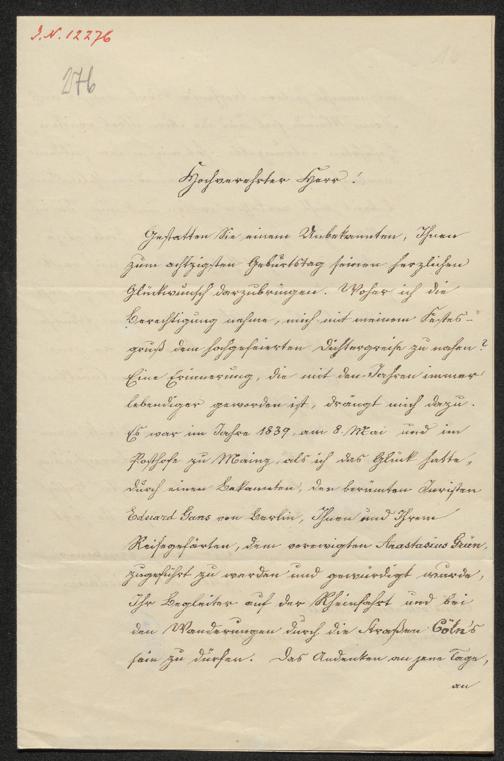 J.N. 12276
276
Hochverehrter Herr!
Gestatten Sie einem Unbekannten, Ihnen
zum achtzigsten Geburtstag seinen herzlichen
Glückwunsch darzubringen. Woher ich die
Berechtigung nehme, mich mit meinem Festes-
gruß dem hochgefeierten Dichtergreise zu nahen?
Eine Erinnerung, die mit den Jahren immer
lebendiger geworden ist, drängt mich dazu.
Es war im Jahre 1839, am 8. Mai und im
Posthofe zu Mainz, als ich das Glück hatte,
durch einen Bekannten, den berümten Juristen
Eduard Gans von Berlin, Ihnen und Ihrem
Reisegefärten, dem verewigten Anastasius Grün,
zugeführt zu werden und gewürdigt wurde,
Ihr Begleiter auf der Rheinfahrt und bei
den Wanderungen durch die Straßen Cöln's
sein zu dürfen. Das Andenken an jene Tage,
an